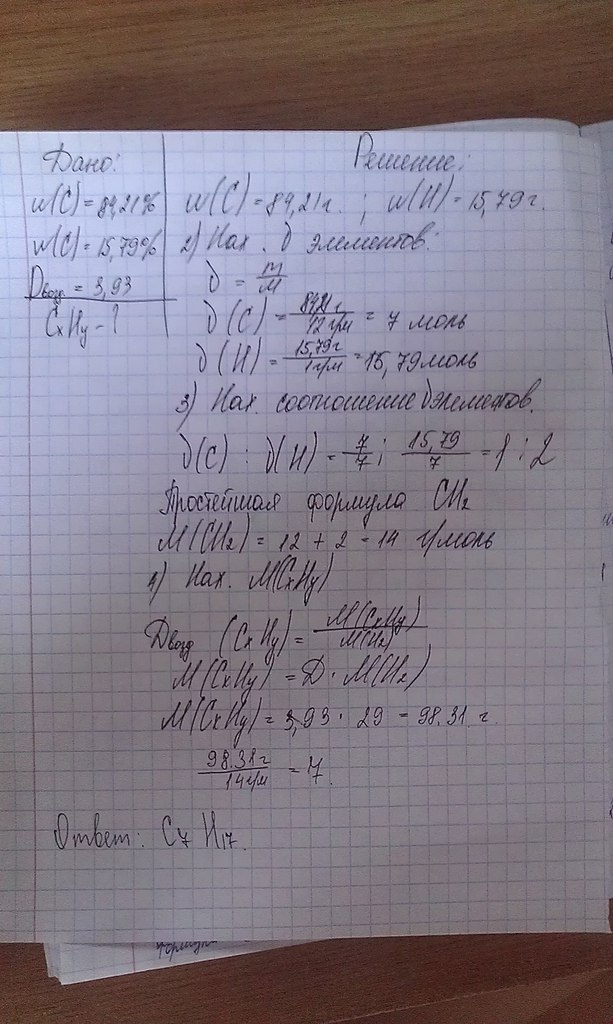 Дано:
w(C) = 84,21%
w(C) = 15,79%
Dвозд = 3,93
CxHy - ?
Решение:
w(C) = 84,21г. ; w(H) = 15,79г.
2) Нах. ∂ элементов:
∂ = m/M
∂(C) = 84,21г/12г/м = 7 моль
∂(H) = 15,79г/1г/м = 15,79моль
3) Нах. соотношение ∂ элементов.
∂(C) : ∂(H) = 7/7 ; 15,79/7 = 1 : 2
Простейшая формула CH2
M(CH2) = 12 + 2 = 14 г/моль
4) Нах. M(CxHy)
Dвозд (CxHy) = M(CxHy)/M(H2)
M(CxHy) = D · M(H2)
M(CxHy) = 3,93 · 29 = 98.31 г.
98.31г/14г/м = 7.
Ответ: C7 H17.